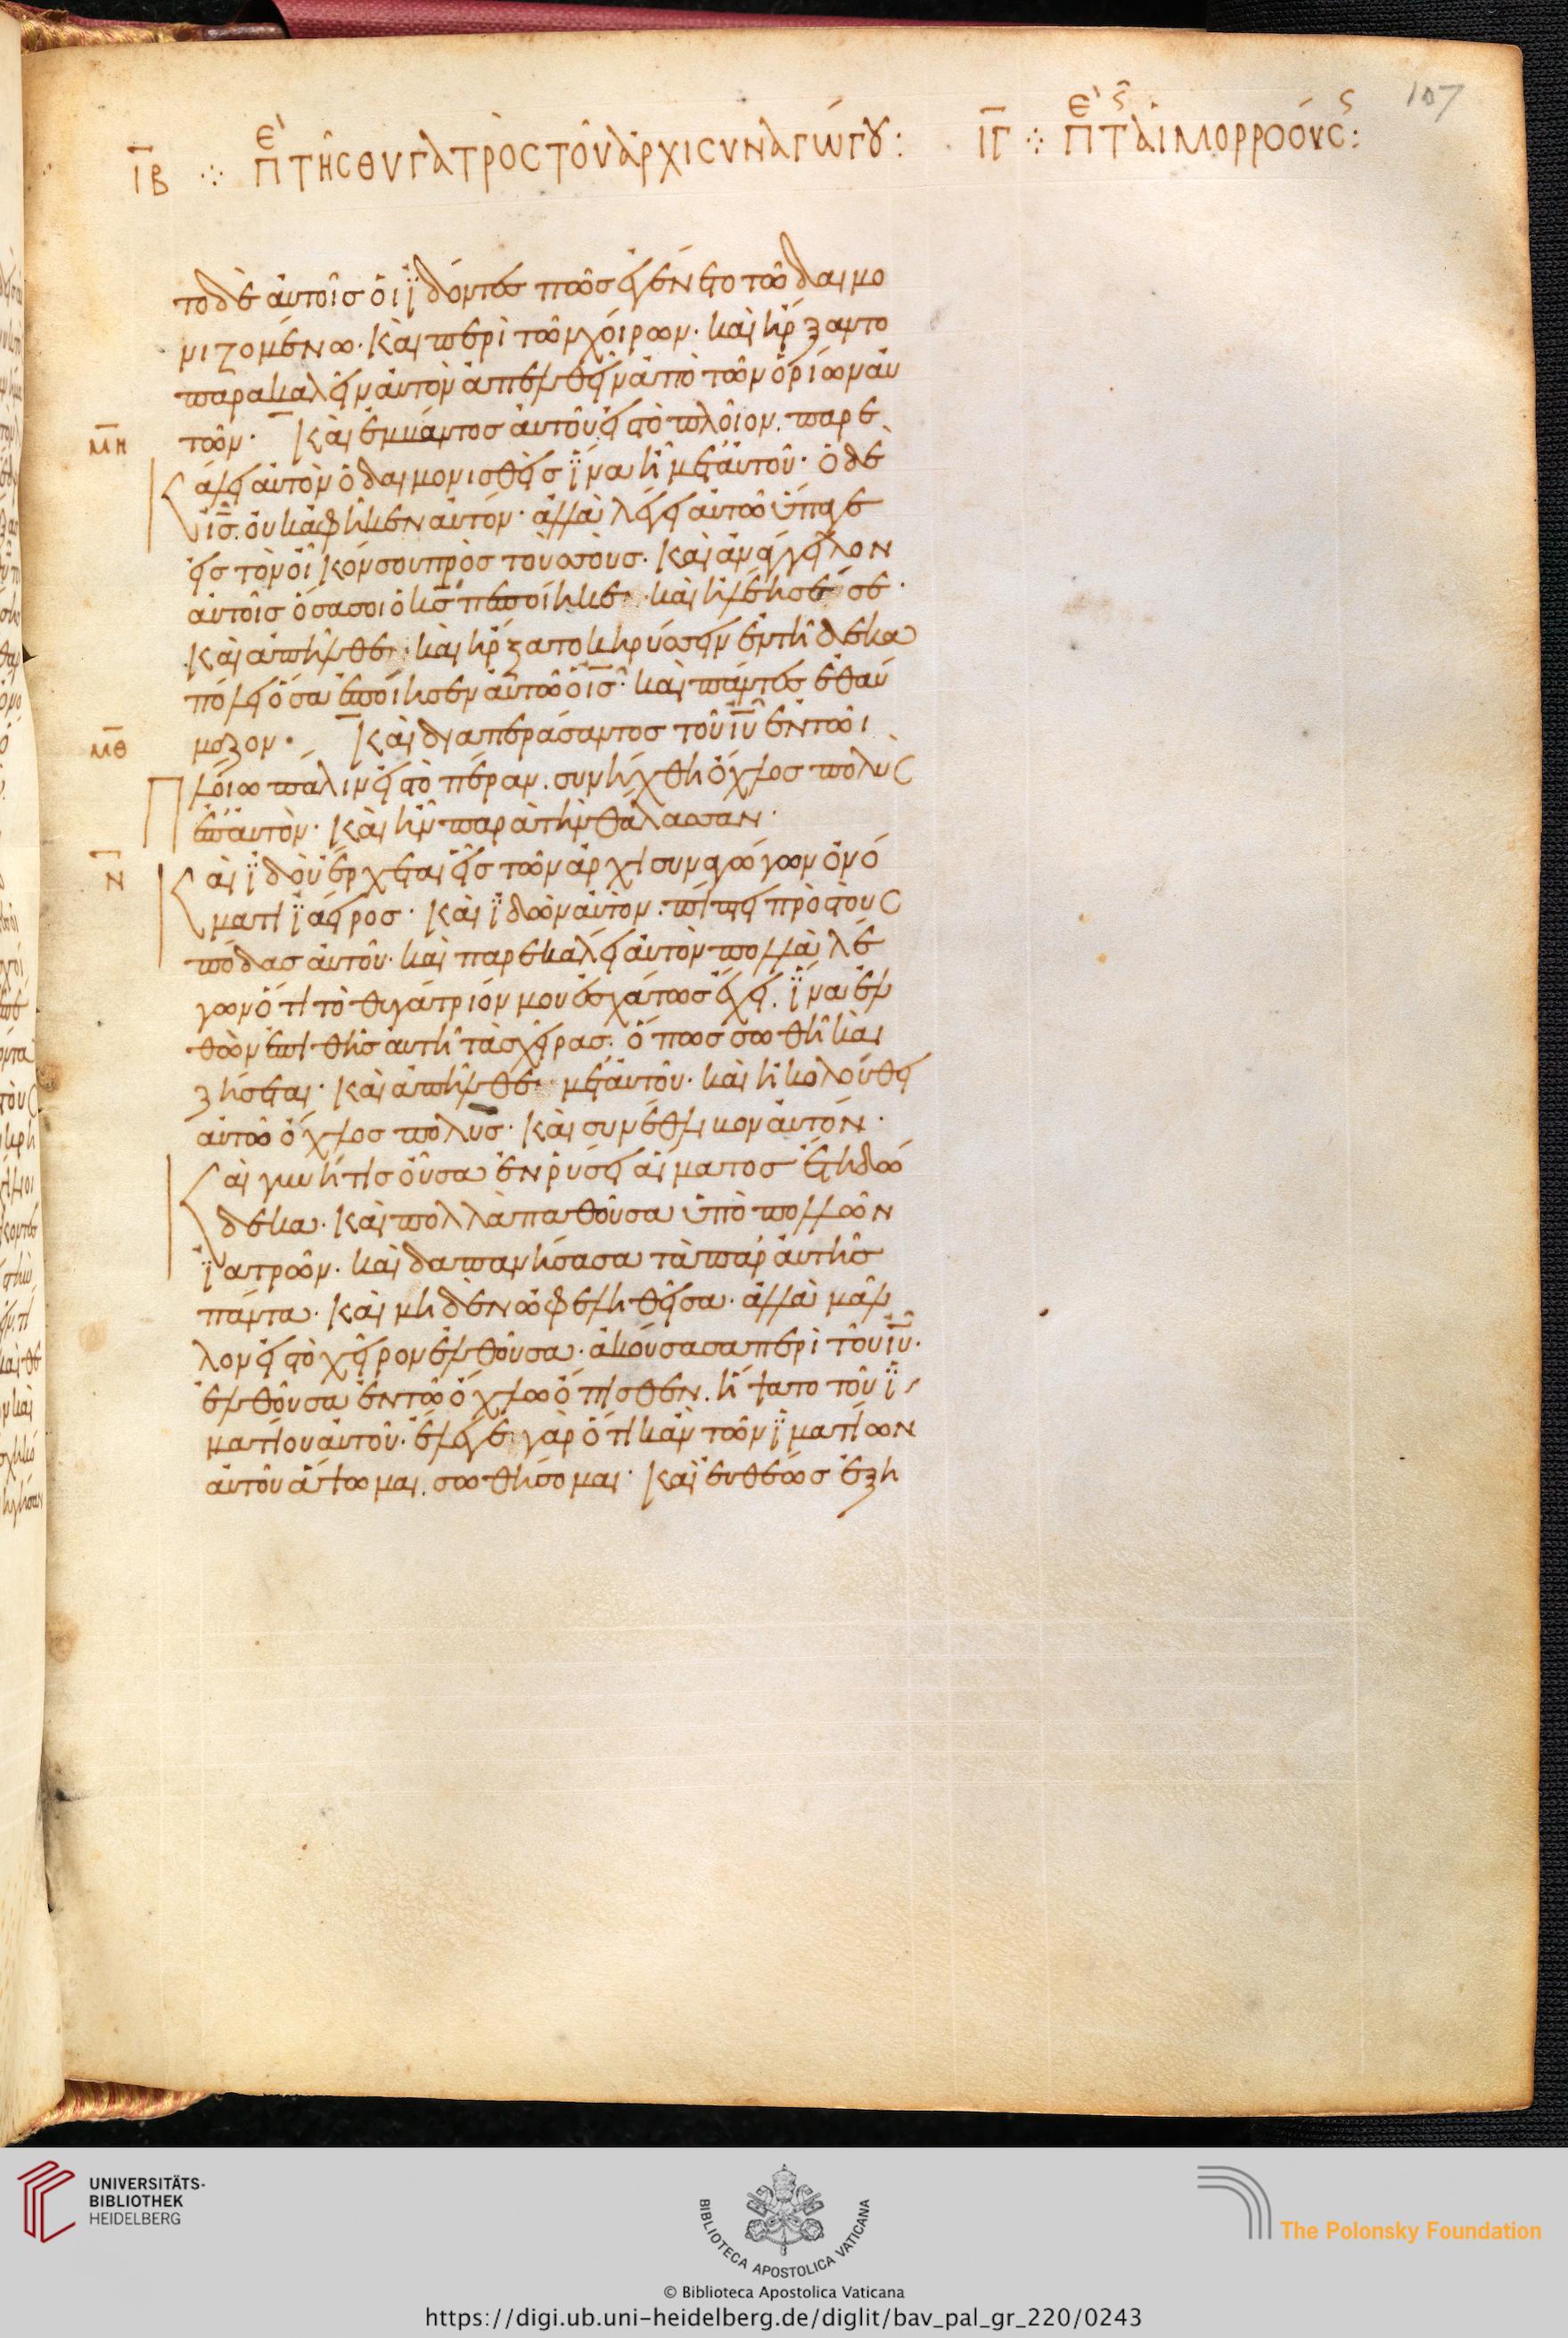 107
ΙΒ ⁘ ΠῈ ΤΗ͂Ϲ ΘΥΓΑΤΡῸϹ ΤΟΥ͂ ἈΡΧΙϹΥΝΑΓΏΓȢ:
ΙΓ ⁘ ΠῈ Τ͂Ϲ ΑἹΜΟΡΡΟΌΥϹϹ:
το δὲ αὐτοῖσ οἱ ϊδόντες πῶσ ἐγένετο τῶ δαιμο
νιζομένω· καὶ περὶ τῶν χοίρων· καὶ ἤρξαντο
παρακαλεῖν αὐτὸν ἀπελθεῖν ἀπὸ τῶν ὁρίων αὐ
ΜΗ
τῶν· Καὶ ἐμβάντοσ αὐτοῦ εἰς τὸ πλοῖον. παρε
κάλει αὐτὸν ὁ δαιμονισθεὶσ ϊνα ἦ μετ' αὐτοῦ· ὁ δὲ
ις̅. οὐκ ἀφῆκεν αὐτόν· ἀλλὰ λέγει αὐτῶ ὕπαγε
εἰσ τὸν οἶκόν σου πρὸσ τοὺσ σοὺσ· καὶ ἀνάγγειλον
αὐτοῖσ ὅσα σοι ὁ κς̅ πεποίηκε· καὶ ἠλέησέ σε·
Καὶ ἀπῆλθε· καὶ ἤρξατο κηρύσσειν ἐν τῆ δεκα
πόλει ὅσα ἐποίησεν αὐτῶ ὁ ις̅· καὶ πάντες ἐθαύ
ΜΘ
μαζον· Καὶ διαπεράσαντοσ τοῦ ιυ̅ ἐν τῶι
πλοίω πάλιν εἰς τὸ πέραν. συνήχθη ὄχλοσ πολὺς
ἐπ' αὐτὸν· καὶ ἦν παρὰ τὴν θάλασσαν·
Ν
Καὶ ϊδοὺ ἔρχεται εἷσ τῶν ἀρχισυναγώγων ὀνό
ματι ϊάειροσ· καὶ ϊδὼν αὐτον. πίπτει πρὸς τοὺς
πόδασ αὐτοῦ· καὶ παρεκάλει αὐτὸν πολλὰ λέ
γων ὅτι τὸ θυγάτριόν μου ἐσχάτωσ ἔχει. ϊνα ἐλ
θὼν ἐπιθῆσ αὐτῆ τὰσ χεῖρασ. ὅπωσ σωθῆ καὶ
ζήσεται· καὶ ἀπῆλθε· μετ' αὐτοῦ· καὶ ἠκολούθει
αὐτῶ ὄχλοσ πολυσ· καὶ συνέθλιβον αὐτόν·
Καὶ γυνή τισ οὖσα ἐν ῥύσει αἵματοσ ἔτη δώ
δεκα· καὶ πολλὰ παθοῦσα ὑπὸ πολλῶν
ϊατρῶν· καὶ δαπανήσασα τὰ παρ' αὐτῆσ
πάντα· καὶ μηδὲν ὠφεληθεῖσα· ἀλλὰ μᾶλ
λον εἰς τὸ χεῖρον ἐλθοῦσα· ἀκούσασα περὶ τοῦ ιυ̅·
ἐλθοῦσα ἐν τῶ ὄχλω ὄπισθεν. ἥψατο τοῦ ϊ
ματίου αὐτοῦ· ἔλεγε· γὰρ ὅτι κἂν τῶν ϊματίων
αὐτοῦ ἅψωμαι. σωθήσομαι· καὶ εὐθέωσ ἐξη
UNIVERSITÄTS-
BIBLIOTHEK
HEIDELBERG
BIBLIOTECA APOSTOLICA VATICANA
The Polonsky Foundation
© Biblioteca Apostolica Vaticana
https://digi.ub.uni-heidelberg.de/diglit/bav_pal_gr_220/0243